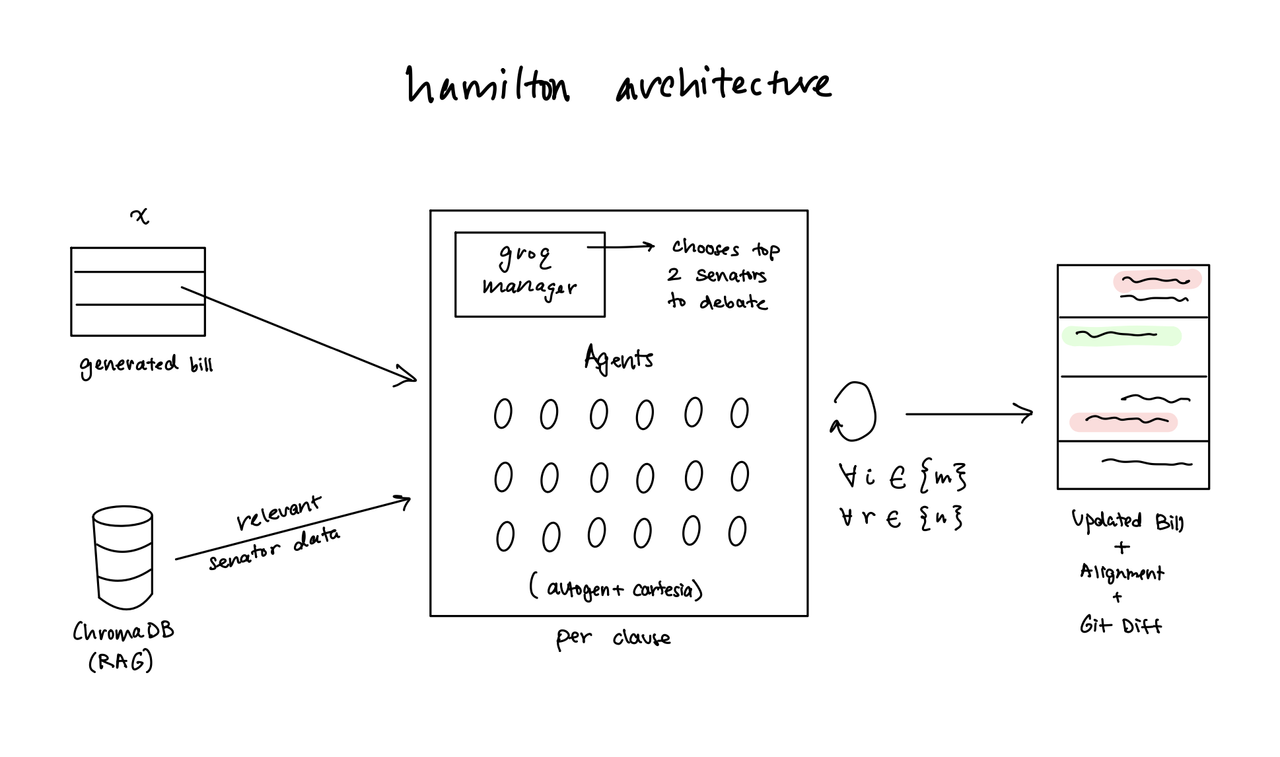 hamilton architecture
x
generated bill
ChromaDB
(RAG)
relevant
senator data
groq
manager
chooses top
2 senators
to debate
Agents
(autogen + cartesia)
per clause
∀ i ∈ {m}
∀ r ∈ {n}
Updated Bill
+
Alignment
+
Git Diff